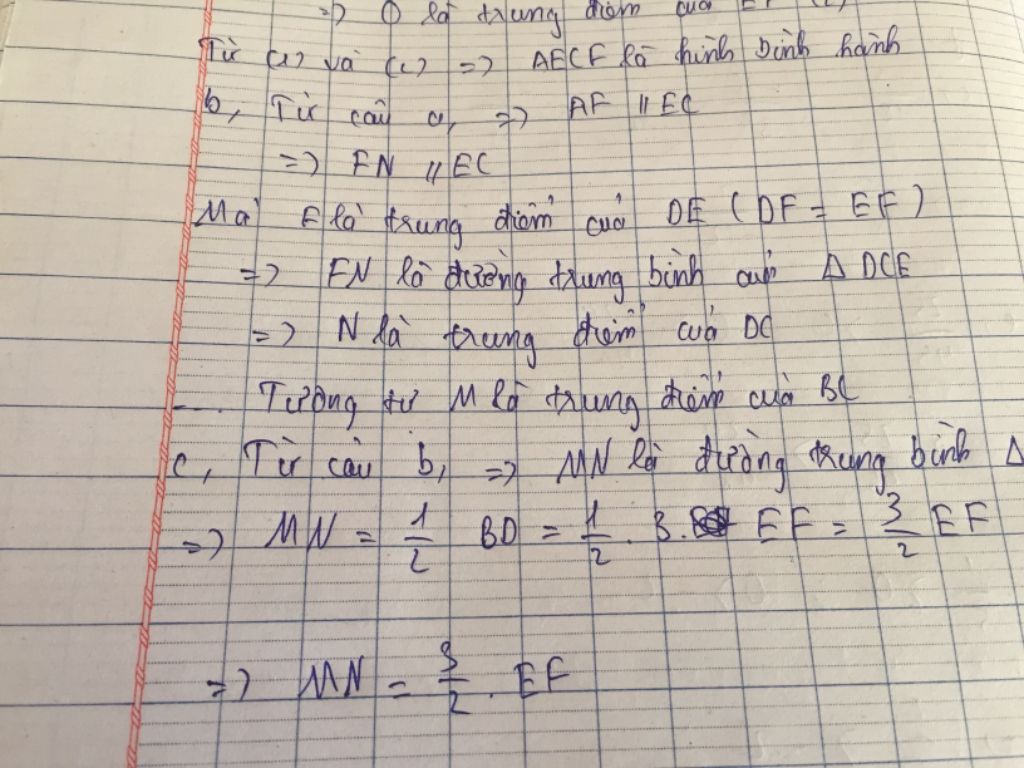 => O là trung điểm của EF (2)
Từ (1) và (2) => AECF là hình bình hành
b, Từ câu a, => AF // EC
=> FN // EC
Mà F là trung điểm của DE (DF = EF)
=> FN là đường trung bình của Δ DCE
=> N là trung điểm của DC
Tương tự M là trung điểm của BC
c, Từ câu b, => MN là đường trung bình Δ
=> MN = 1/2 BD = 1/2 . 3. EF = 3/2 EF
=> MN = 3/2 . EF